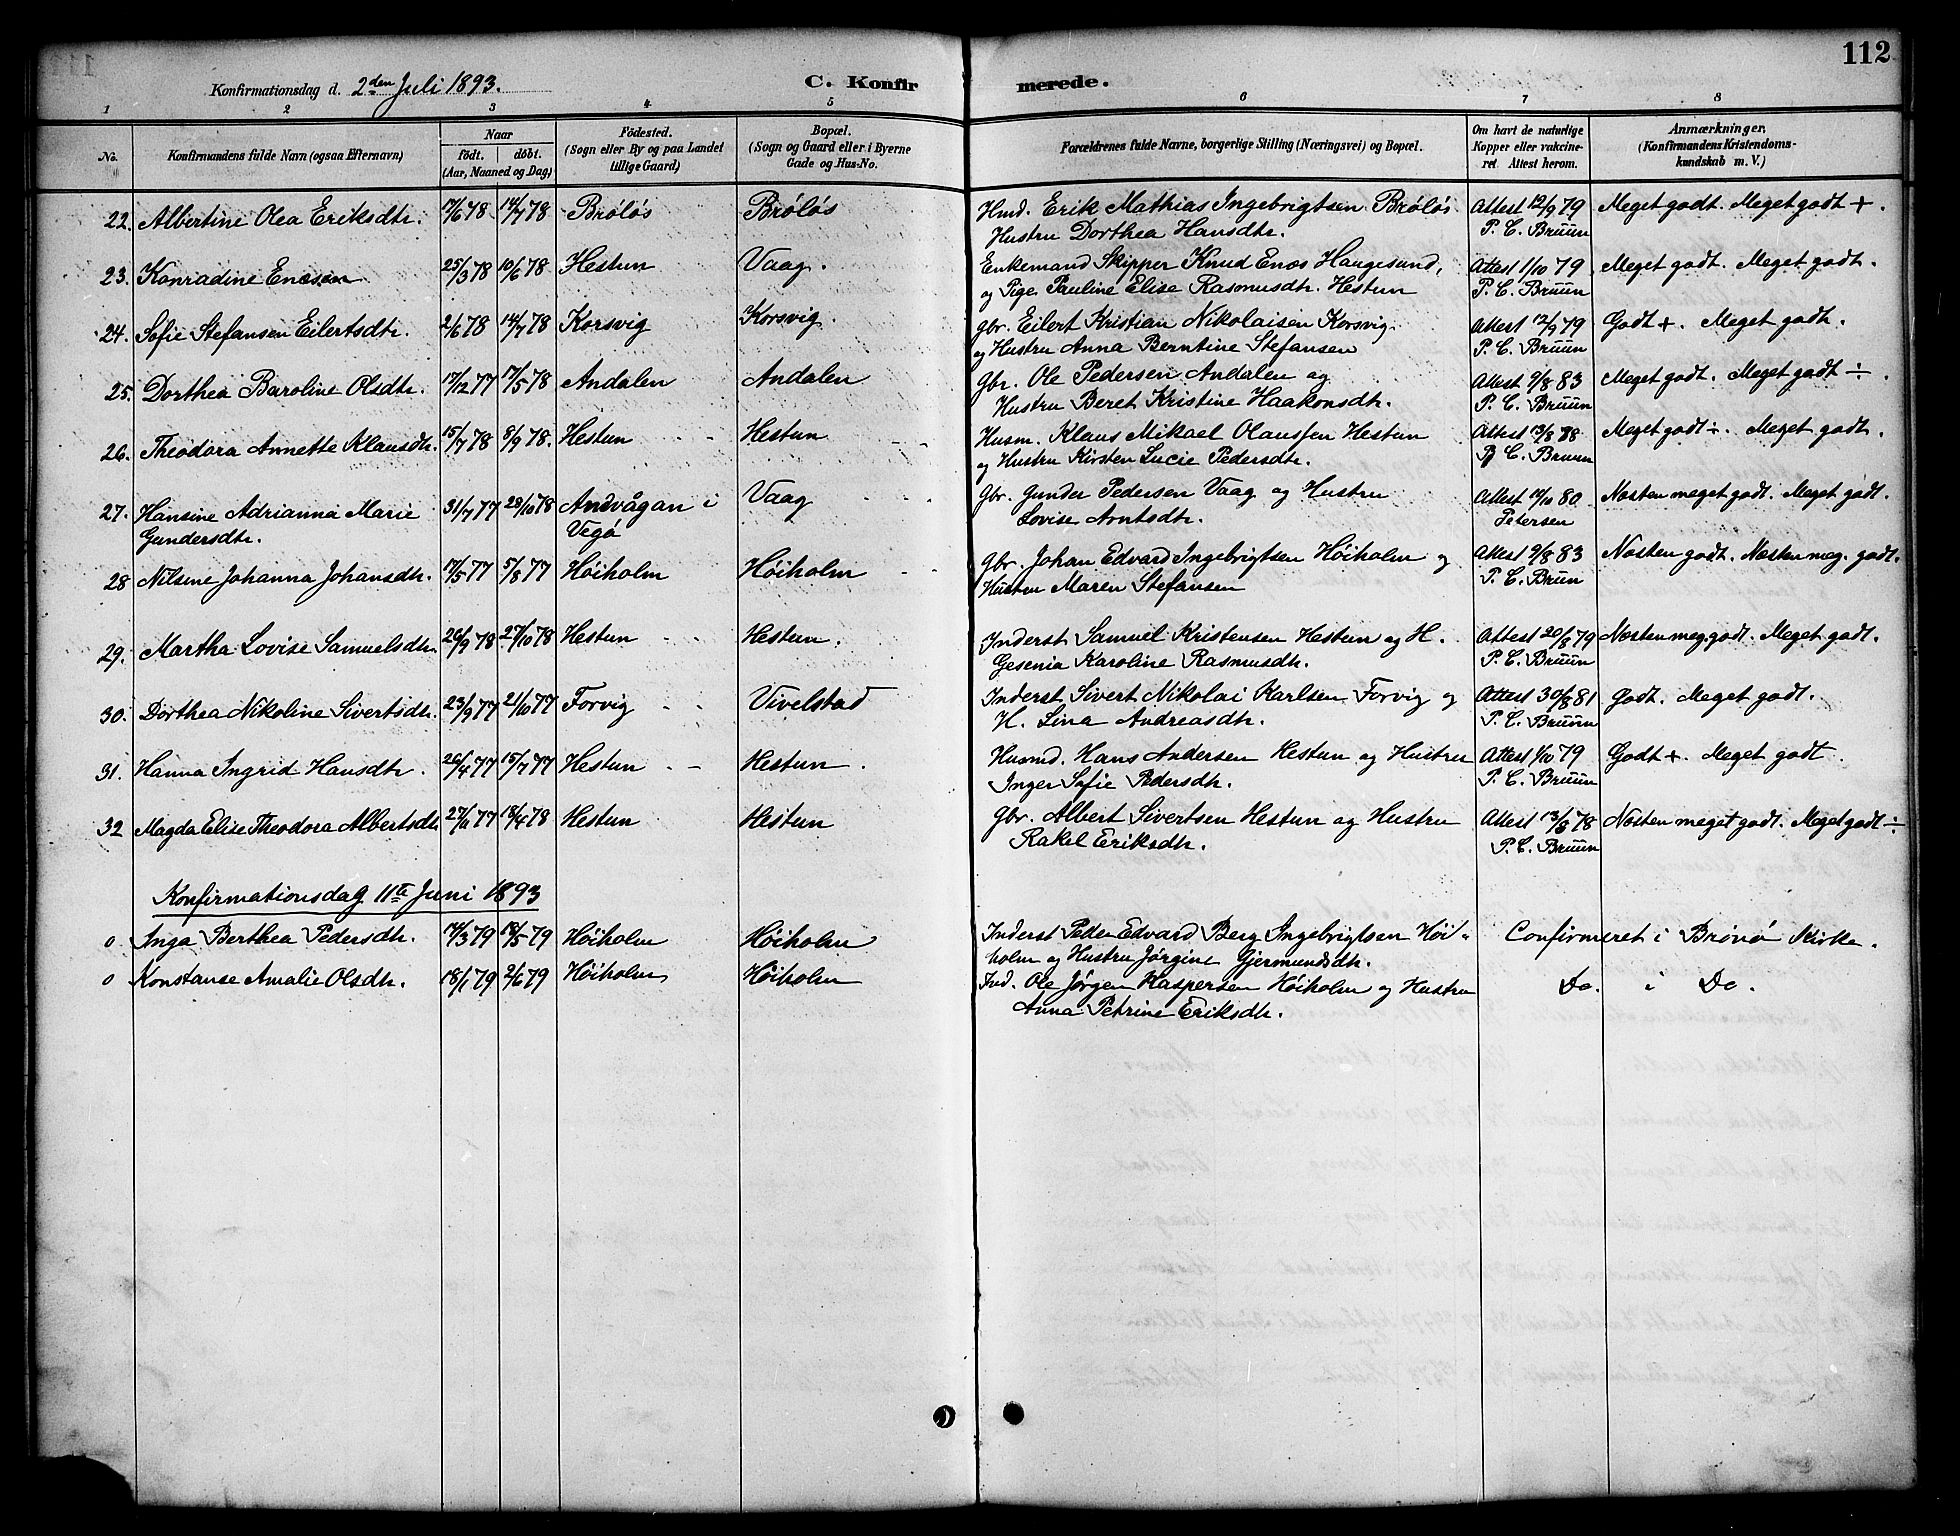 112
Konfirmationsdag d. 2den Juli 1893. C. Konfirmerede.
1 2 3 4 5 6 7 8
No. Konfirmandens fulde Navn (ogsaa Efternavn) Naar födt. döbt. (Aar, Maaned og Dag) Födested. (Sogn eller By og paa Landet tillige Gaard) Bopæl. (Sogn og Gaard eller i Byerne Gade og Hus-No. Forældrenes fulde Navne, borgerlige Stilling (Næringsvei) og Bopæl. Om havt de naturlige Kopper eller vakcineret. Attest herom. Anmærkninger. (Konfirmandens Kristendomskundskab m. V.)
22. Albertine Olea Eriksdtr. 7/6 78 14/7 78 Bröløs Bröløs Husd. Erik Mathias Ingebrigtsen Bröløs Attest 12/9 79 Meget godt. Meget godt +.
Hustru Dorthea Hansdtr. P. C. Bruun
23. Konradine Enesen 25/3 78 10/6 78 Hestun Vaag. Enkemand Skipper Knud Enes Haugesund, Attest 1/10 79 Meget godt. Meget godt.
og Pige Pauline Elise Rasmusdtr. Hestun P. C. Bruun
24. Sofie Stefansen Eilertsdtr. 2/6 78 14/7 78 Korsvig Korsvig. Gbr. Eilert Kristian Nikolaisen Korsvig Attest 12/9 79 Godt +. Meget godt.
og Hustru Anna Berntine Stefansen P. C. Bruun
25. Dorthea Baroline Olsdtr. 17/12 77 17/5 78 Andalen Andalen Gbr. Ole Pedersen Andalen og Attest 9/8 83 Meget godt. Meget godt ÷.
Hustru Beret Kristine Haakonsdtr. P. C. Bruun
26. Theodora Annette Klausdtr. 15/7 78 8/9 78. Hestun Hestun Husm. Klaus Mikael Olaussen Hestun Attest 13/8 78 Meget godt ÷. Meget godt.
og Hustru Kirsten Lucie Pedersdtr. P. C. Bruun
27. Hansine Adrianna Marie 31/7 77 28/10 78 Andvågan i Vaag Gbr. Gunder Pedersen Vaag og Hustru Attest 17/10 80 Næsten meget godt. Meget godt.
Gundersdtr. Vegö Lovise Arntsdtr. Petersen
28 Nilsine Johanna Johansdtr. 17/5 77 5/8 77 Höiholm Höiholm Gbr. Johan Edvard Ingebrigtsen Höiholm og Attest 9/8 83 Næsten godt. Næsten meg. godt.
Hustru Maren Stefansen P. C. Bruun
29. Martha Lovise Samuelsdtr. 26/9 78 27/10 78 Hestun Hestun. Inderst Samuel Kristensen Hestun og H. Attest 20/8 79 Næsten meg. godt. Meget godt.
Gesenia Karoline Rasmusdtr. P. C. Bruun
30. Dorthea Nikoline Sivertsdtr. 23/9 77 21/10 77 Forvig Vivelstad Inderst Sivert Nikolai Karlsen Forvig og Attest 30/8 81 Godt. Meget godt.
H. Lina Andreasdtr. P. C. Bruun
31. Hanna Ingrid Hansdtr. 26/4 77 15/7 77 Hestun Hestun. Husmd. Hans Andersen Hestun og Hustru Attest 1/10 79 Godt +. Meget godt.
Inger Sofie Pedersdtr. P. C. Bruun
32 Magda Elise Theodora Albertsdtr. 27/11 77 18/4 78 Hestun Hestun Gbr. Albert Sivertsen Hestun og Hustru Attest 13/8 78 Næsten meget godt. Meget godt ÷
Rakel Eriksdtr. P. C. Bruun
Konfirmationsdag 11te Juni 1893
0 Inga Berthea Pedersdtr. 17/3 79 18/5 79 Höiholm Höiholm Inderst Peder Edvard Berg Ingebrigtsen Höi- Confirmeret i Brönö Kirke.
holm og Hustru Jørgine Gjermundsdtr.
0 Konstanse Amalie Olsdtr. 18/1 79 2/6 79 Höiholm Höiholm Ind. Ole Jørgen Kaspersen Höiholm og Hustru Do. i Do.
Anna Petrine Eriksdtr.